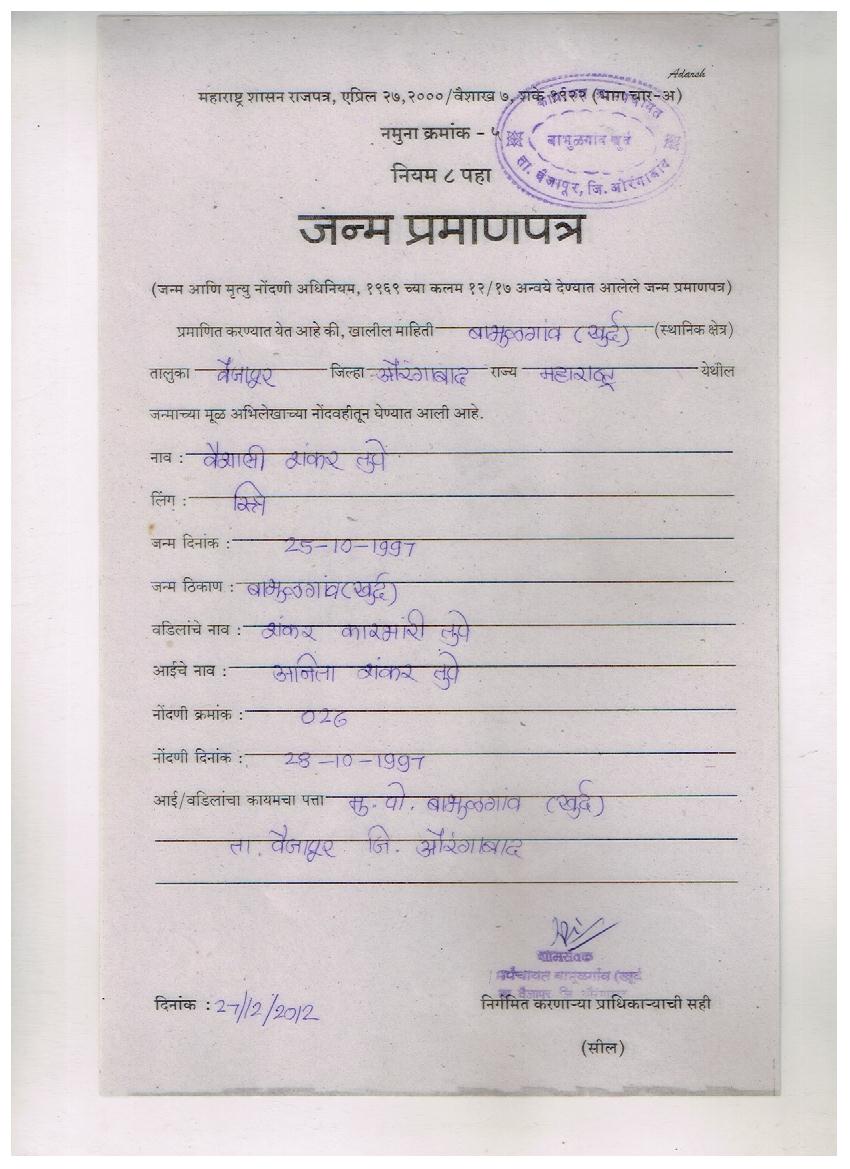 Adarsh
महाराष्ट्र शासन राजपत्र, एप्रिल २७,२०००/वैशाख ७, शके १९२२ (भाग चार-अ)
नमुना क्रमांक - ५
बाभुळगांव खुर्द
ता. वैजापूर, जि. औरंगाबाद
नियम ८ पहा
जन्म प्रमाणपत्र
(जन्म आणि मृत्यु नोंदणी अधिनियम, १९६९ च्या कलम १२/१७ अन्वये देण्यात आलेले जन्म प्रमाणपत्र)
प्रमाणित करण्यात येत आहे की, खालील माहिती बाभुळगांव (खुर्द) (स्थानिक क्षेत्र)
तालुका वैजापूर जिल्हा औरंगाबाद राज्य महाराष्ट्र येथील
जन्माच्या मूळ अभिलेखाच्या नोंदवहीतून घेण्यात आली आहे.
नाव : वैशाली शंकर तुपे
लिंग : स्त्रि
जन्म दिनांक : 25-10-1997
जन्म ठिकाण : बाभुळगांव (खुर्द)
वडिलांचे नाव : शंकर कारभारी तुपे
आईचे नाव : अनिता शंकर तुपे
नोंदणी क्रमांक : 026
नोंदणी दिनांक : 28-10-1997
आई/वडिलांचा कायमचा पत्ता मु. पो. बाभुळगांव (खुर्द)
ता. वैजापूर जि. औरंगाबाद
ग्रामसेवक
ग्रामपंचायत बाभूळगांव (खुर्द
ता. वैजापूर जि. औरंगाबाद
दिनांक : 27/12/2012 निर्गमित करणाऱ्या प्राधिकाऱ्याची सही
(सील)